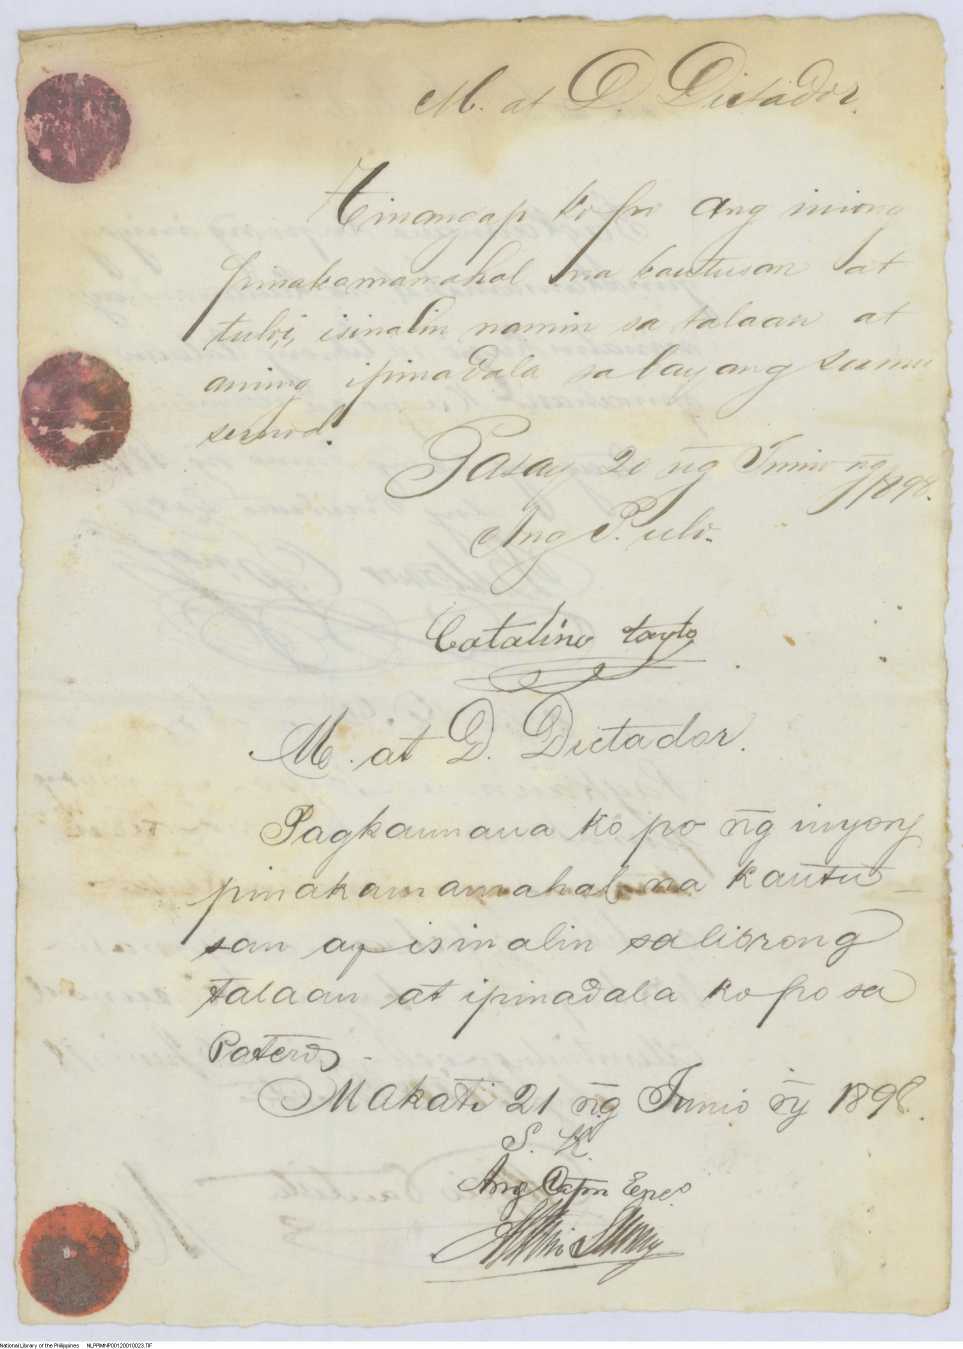 M. at D. Dictador.
Hinangap ko po ang iniong
pinakamamahal na kautusan at
tuloi, isinalin namin sa talaan at
aming ipinadala sa bayang sumu
sunod.
Pasay 20 ng Junio ng
1898.
Ang P. ulo.
Catalino tayto
M. at D. Dictador.
Pagkaunaua ko po ñg inyong
pinakamamahal na kautu-
san ay isinalin salibrong
talaan at ipinadala ko po sa
Pateros -
Makati 21 ñg Junio ñg 1898.
S. K.
Ang Capn
National Library of the Philippines NLPPIMNP00120010023.TIF